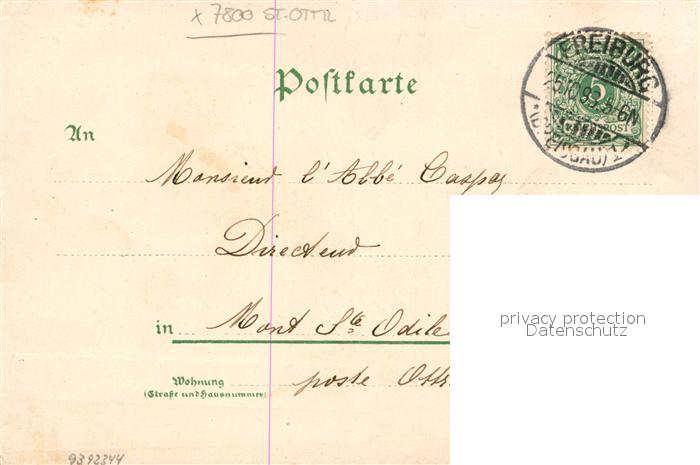 x 7800 ST-OTTIL
Postkarte
FREIBURG
(BREISGAU) 1
5
An
Monsieur l'Abbé Caspar
Directeur
in Mont Ste Odile
privacy protection
Datenschutz
Wohnung
(Straße und Hausnummer)
poste Ottr
9392344